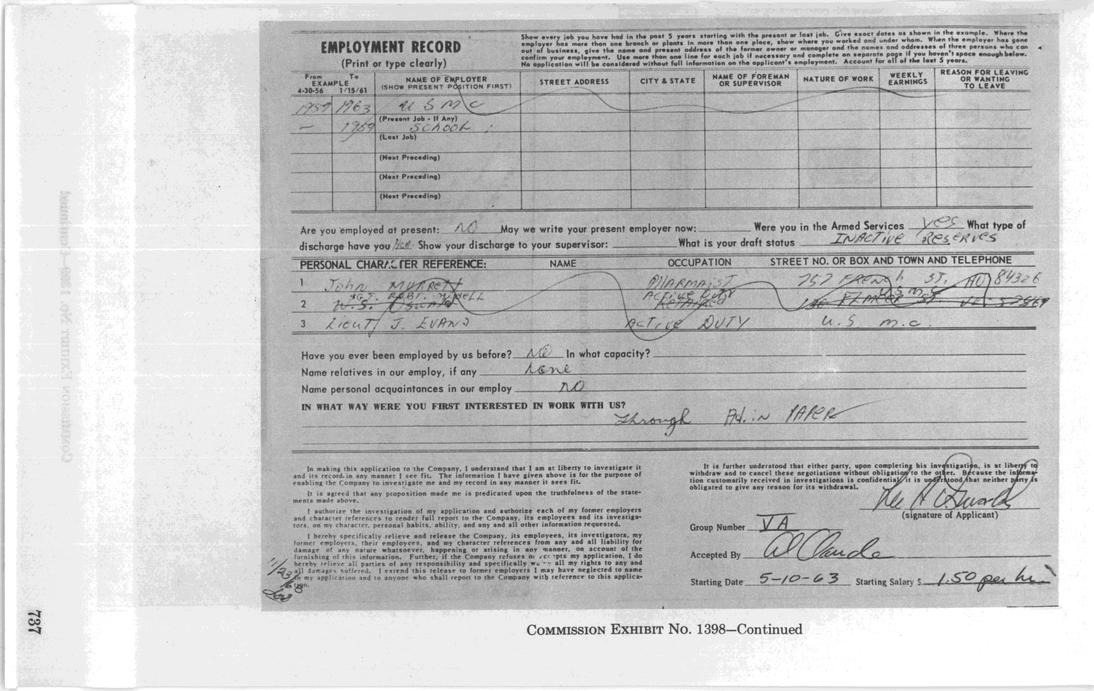 EMPLOYMENT RECORD
(Print or type clearly)
Show every job you have had in the past 5 years starting with the present or last job. Give exact dates as shown in the example. Where the
employer has more than one branch or plants in more than one place, show where you worked and under whom. When the employer has gone
out of business, give the name and present address of the former owner or manager and the names and addresses of three persons who can
confirm your employment. Use more than one line for each job if necessary and complete on separate page if you haven't space enough below.
No application will be considered without full information on the applicant's employment. Account for all of the last 5 years.
From To
EXAMPLE
4-30-56 1/15/61
NAME OF EMPLOYER
(SHOW PRESENT POSITION FIRST)
STREET ADDRESS
CITY & STATE
NAME OF FOREMAN
OR SUPERVISOR
NATURE OF WORK
WEEKLY
EARNINGS
REASON FOR LEAVING
OR WANTING
TO LEAVE
1959 1963 U S M C
(Present Job - If Any)
— 1959 School
(Last Job)
(Next Preceding)
(Next Preceding)
(Next Preceding)
Are you employed at present: NO May we write your present employer now: Were you in the Armed Services yes What type of
discharge have you Show your discharge to your supervisor: What is your draft status INACTIVE RESERVES
PERSONAL CHARACTER REFERENCE: NAME OCCUPATION STREET NO. OR BOX AND TOWN AND TELEPHONE
1 John MURRETT PHARMAIST 757 FRENCH ST. HO 84326
2 SGT. ROBT. ACTIVE DUTY U.S.M.C.
3 Lieut J. EVANS ACTIVE DUTY U.S. M.C.
Have you ever been employed by us before? NO In what capacity?
Name relatives in our employ, if any None
Name personal acquaintances in our employ NO
IN WHAT WAY WERE YOU FIRST INTERESTED IN WORK WITH US?
through Ad. in PAPER
In making this application to the Company, I understand that I am at liberty to investigate it
and its record in any manner I see fit. The information I have given above is for the purpose of
enabling the Company to investigate me and my record in any manner it sees fit.
It is agreed that any proposition made me is predicated upon the truthfulness of the state-
ments made above.
I authorize the investigation of my application and authorize each of my former employers
and character references to render full report to the Company, its employees and its investiga-
tors, on my character, personal habits, ability, and any and all other information requested.
I hereby specifically relieve and release the Company, its employees, its investigators, my
former employers, their employees, and my character references from any and all liability for
damage of any nature whatsoever, happening or arising in any manner, on account of the
furnishing of this information. Further, if the Company refuses or accepts my application, I do
hereby relieve all parties of any responsibility and specifically waive all my rights to any and
all damages suffered. I extend this release to former employers I may have neglected to name
in my application and to anyone who shall report to the Company with reference to this applica-
tion.
It is further understood that either party, upon completing his investigation, is at liberty to
withdraw and to cancel these negotiations without obligation to the other. Because the informa-
tion customarily received in investigations is confidential, it is understood that neither party is
obligated to give any reason for its withdrawal.
Lee H Oswald
(signature of Applicant)
Group Number VA
Accepted By Al Claude
Starting Date 5-10-63 Starting Salary $ 1.50 per hr
11/23
737
COMMISSION EXHIBIT NO. 1398—Continued